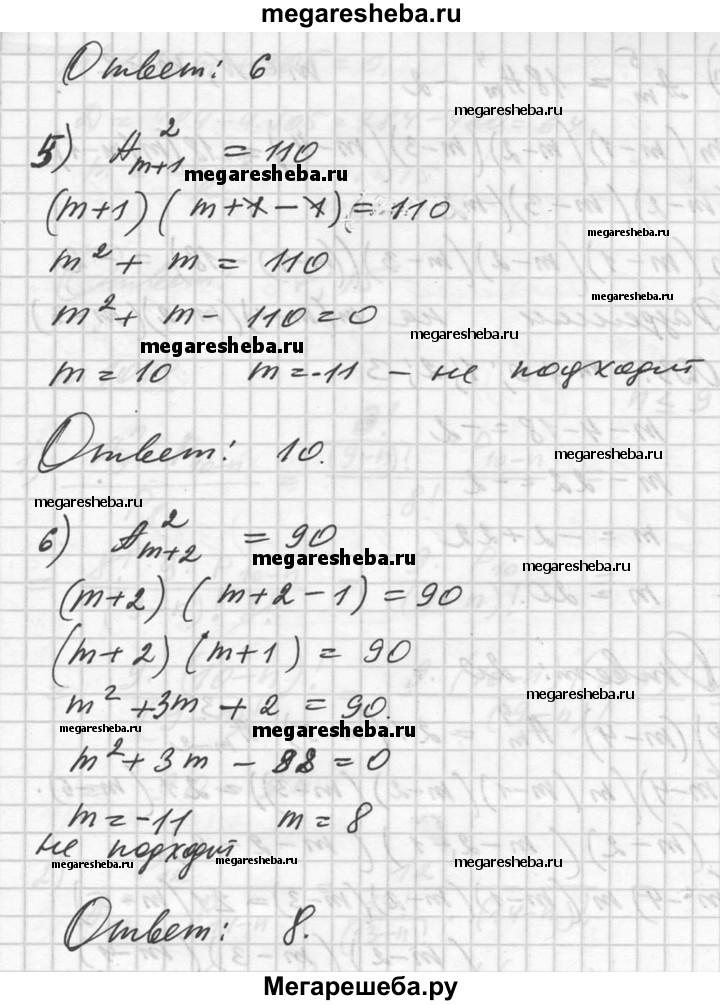 megaresheba.ru
Ответ: 6
megaresheba.ru
5) A²ₘ₊₁ = 110
megaresheba.ru
(m+1)(m+1-1) = 110
megaresheba.ru
m² + m = 110
megaresheba.ru
m² + m - 110 = 0
megaresheba.ru
megaresheba.ru
m = 10 m = -11 - не подходит
Ответ: 10.
megaresheba.ru
megaresheba.ru
6) A²ₘ₊₂ = 90
megaresheba.ru
megaresheba.ru
(m+2)(m+2-1) = 90
(m+2)(m+1) = 90
megaresheba.ru
m² + 3m + 2 = 90.
megaresheba.ru
megaresheba.ru
m² + 3m - 88 = 0
m = -11 m = 8
не подходит
megaresheba.ru
megaresheba.ru
megaresheba.ru
Ответ: 8.
Мегарешеба.ру